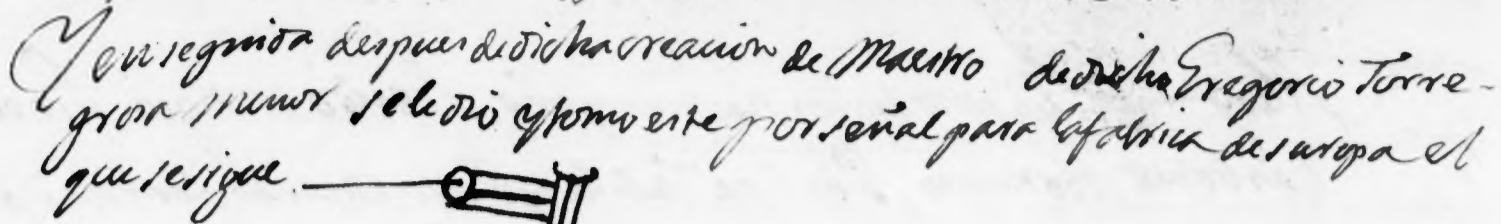 Y en seguida despues de dicha creacion de Maestro de dicho Gregorio Torre-
grosa menor se le dio y tomo este por señal para la fabrica de su ropa el
que se sigue